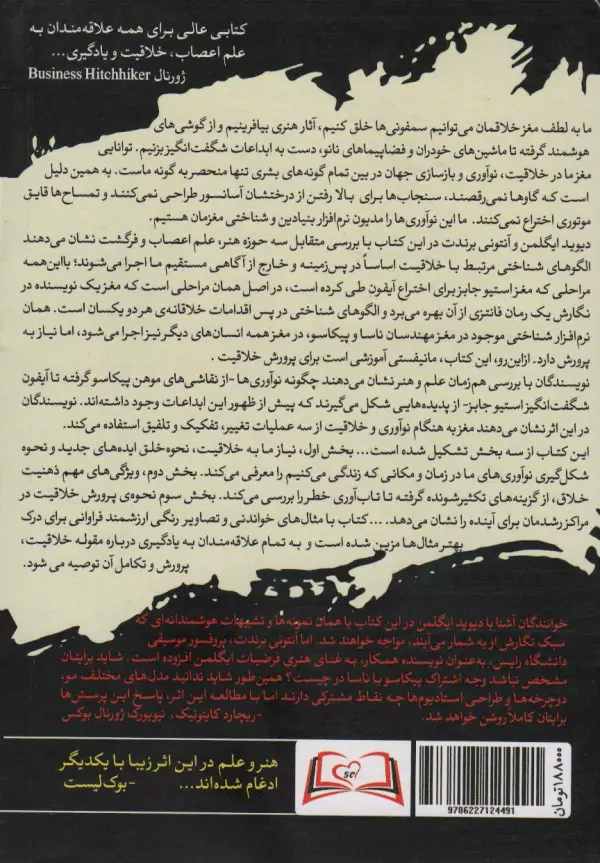 کتابی عالی برای همه علاقه‌مندان به
علم اعصاب، خلاقیت و یادگیری...
ژورنال Business Hitchhiker
ما به لطف مغز خلاقمان می‌توانیم سمفونی‌ها خلق کنیم، آثار هنری بیافرینیم و از گوشی‌های
هوشمند گرفته تا ماشین‌های خودران و فضاپیماهای نانو، دست به ابداعات شگفت‌انگیز بزنیم. توانایی
مغز ما در خلاقیت، نوآوری و بازسازی جهان در بین تمام گونه‌های بشری تنها منحصر به گونه ماست. به همین دلیل
است که گاوها نمی‌رقصند، سنجاب‌ها برای بالا رفتن از درختشان آسانسور طراحی نمی‌کنند و تمساح‌ها قایق
موتوری اختراع نمی‌کنند. ما این نوآوری‌ها را مدیون نرم‌افزار بنیادین و شناختی مغزمان هستیم.
دیوید ایگلمن و آنتونی برندت در این کتاب با بررسی متقابل سه حوزه هنر، علم اعصاب و فرگشت نشان می‌دهند
الگوهای شناختی مرتبط با خلاقیت اساساً در پس‌زمینه و خارج از آگاهی مستقیم ما اجرا می‌شوند؛ بااین‌همه
مراحلی که مغز استیو جابز برای اختراع آیفون طی کرده است، در اصل همان مراحلی است که مغز یک نویسنده در
نگارش یک رمان فانتزی از آن بهره می‌برد و الگوهای شناختی در پس اقدامات خلاقانه‌ی هر دو یکسان است. همان
نرم‌افزار شناختی موجود در مغز مهندسان ناسا و پیکاسو، در مغز همه انسان‌های دیگر نیز اجرا می‌شود، اما نیاز به
پرورش دارد. ازاین‌رو، این کتاب، مانیفستی آموزشی است برای پرورش خلاقیت .
نویسندگان با بررسی هم‌زمان علم و هنر نشان می‌دهند چگونه نوآوری‌ها -از نقاشی‌های موهن پیکاسو گرفته تا آیفون
شگفت‌انگیز استیو جابز- از پدیده‌هایی شکل می‌گیرند که پیش از ظهور این ابداعات وجود داشته‌اند. نویسندگان
در این اثر نشان می‌دهند مغز به هنگام نوآوری و خلاقیت از سه عملیات تغییر، تفکیک و تلفیق استفاده می‌کند.
این کتاب از سه بخش تشکیل شده است... بخش اول، نیاز ما به خلاقیت، نحوه‌خلق ایده‌های جدید و نحوه
شکل‌گیری نوآوری‌های ما در زمان و مکانی که زندگی می‌کنیم را معرفی می‌کند. بخش دوم، ویژگی‌های مهم ذهنیت
خلاق، از گزینه‌های تکثیرشونده گرفته تا تاب‌آوری خطر را بررسی می‌کند. بخش سوم نحوه‌ی پرورش خلاقیت در
مراکز رشدمان برای آینده را نشان می‌دهد. ... کتاب با مثال‌های خواندنی و تصاویر رنگی ارزشمند فراوانی برای درک
بهتر مثال‌ها مزین شده است و به تمام علاقه‌مندان به یادگیری درباره مقوله خلاقیت،
پرورش و تکامل آن توصیه می شود.
خوانندگان آشنا با دیوید ایگلمن در این کتاب با همان نمونه‌ها و تشبیهات هوشمندانه‌ای که
سبک نگارش او به شمار می‌آیند، مواجه خواهند شد. اما آنتونی برندت، پروفسور موسیقی
دانشگاه رایس، به‌عنوان نویسنده همکار، به غنای هنری فرضیات ایگلمن افزوده است. شاید برایتان
مشخص نباشد وجه اشتراک پیکاسو با ناسا در چیست؟ همین‌طور شاید ندانید مدل‌های مختلف مو،
دوچرخه‌ها و طراحی استادیوم‌ها چه نقاط مشترکی دارند اما با مطالعه این اثر، پاسخ این پرسش‌ها
برایتان کاملاً روشن خواهد شد. -ریچارد کایتونیک، نیویورک ژورنال بوکس
هنر و علم در این اثر زیبا با یکدیگر
ادغام شده‌اند... -بوک‌لیست
9786227124491
۱۸۸۰۰۰ تومان